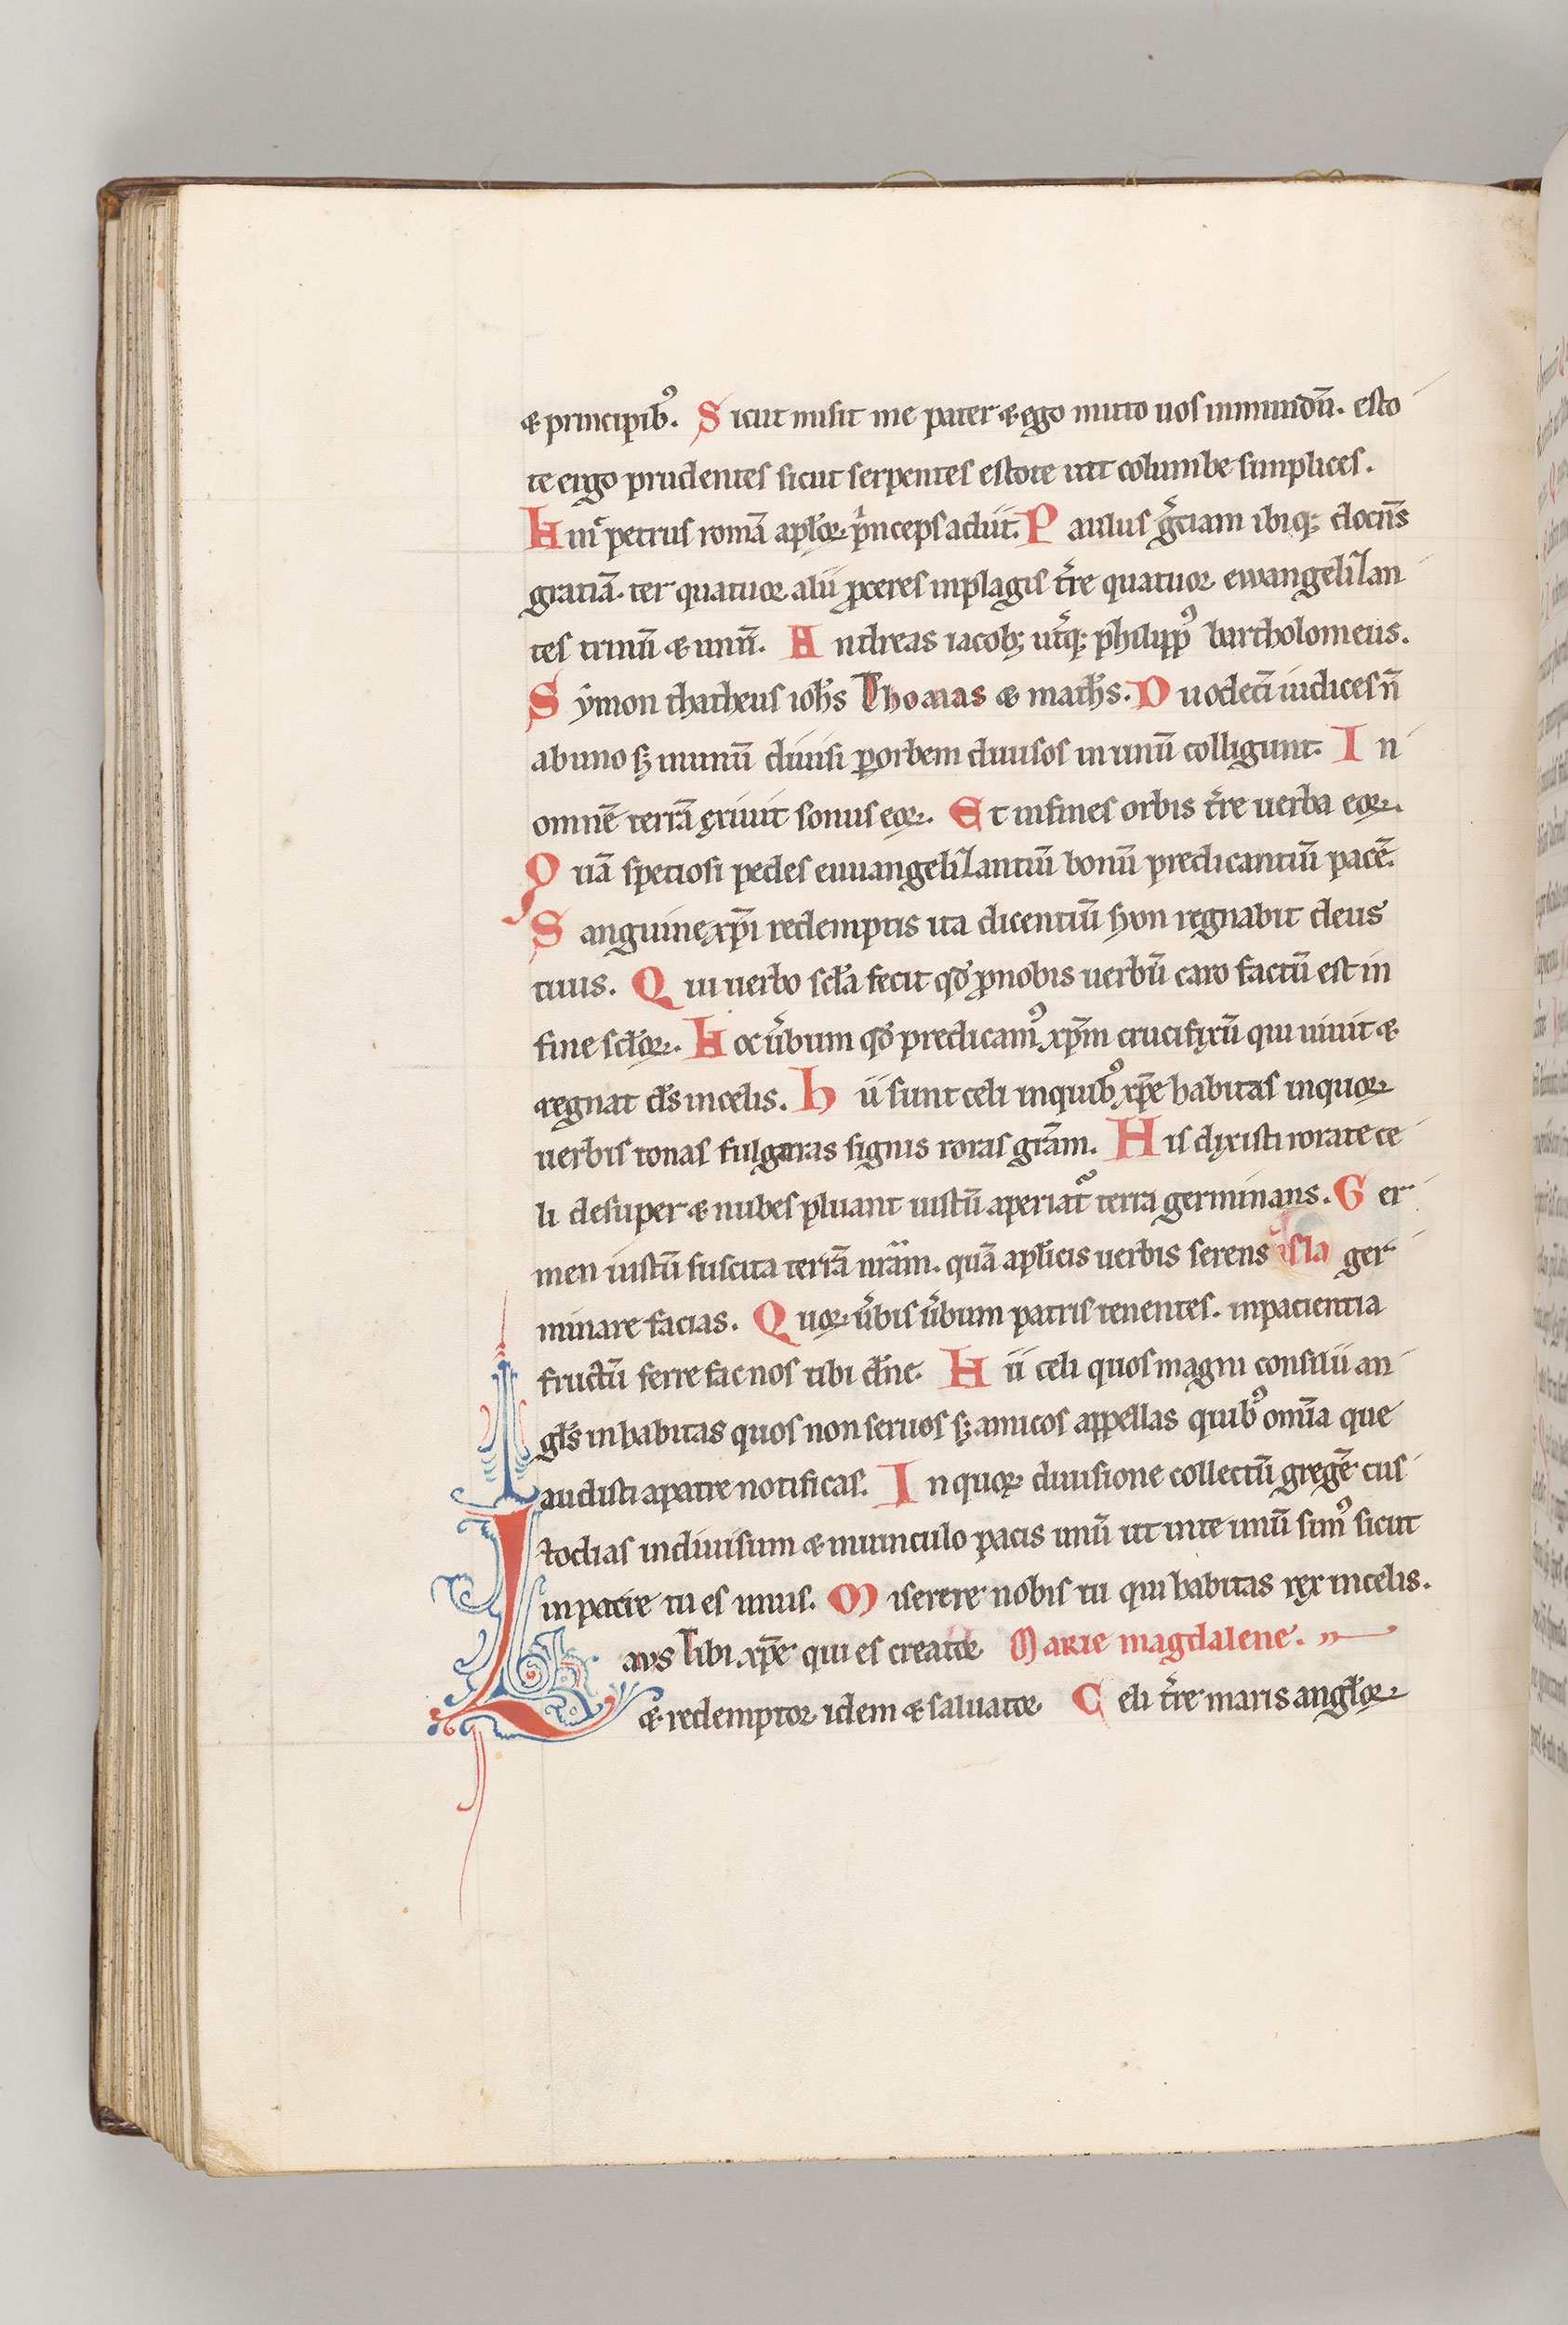 ⁊ principib᷒. Sicut misit me pater ⁊ ego mitto uos inmundū. esto
te ergo prudentes sicut serpentes estote uti columbe simplices.
Hinc petrus romā aplōꝝ princeps adiit. Paulus greciam ibiqꝫ docn̄s
gratiā. ter quatuor alii ꝓceres inplagis tr̄re quatuor ewangelizan
tes trinū ⁊ unū. Andreas iacobꝫ utq̄ꝫ philipp᷒ bartholomeus.
Sẏmon thatheus ioh̄s Thomas ⁊ math̄s. Duodecī iudices n̄
abuno sꝫ inunū diuisi ꝑorbem diuisos in unū colligunt. In
omnē terrā exiuit sonus eoꝝ. Et infines orbis tr̄re uerba eoꝝ.
Quā speciosi pedes euuangelizantiū bonū predicantiū pacē.
Sanguine xp̄i redemptis ita dicentiū syon regnabit deus
tuus. Qui uerbo scl̄a fecit qd̄ ꝓnobis uerbū caro factū est in
fine scl̄oꝝ. Hoc ūbum qd̄ predicam᷒ xp̄m crucifixū qui uiuit ⁊
regnat ds̄ incelis. hii sunt celi inquib᷒ xp̄e habitas inquoꝝ
uerbis tonas fulguras signis roras grām. His dixisti rorate ce
li desuper ⁊ nubes pluant iustū aperiat᷑ terra germinans. Ger
men iustū suscita terrā nr̄am. quā aplicis uerbis serens ger
minare facias. Quoꝝ ūbis ūbum patris tenentes. inpatientia
fructū ferre fac nos tibi dn̄e. Hii celi quos magni consilii an
gl̄s inhabitas quos non seruos sꝫ amicos appellas quib᷒ om̄ia que
audisti apatre notificas. In quoꝝ diuisione collectū gregē cus
todias indiuisum ⁊ inuinculo pacis unū ut inte unū sim᷒ sicut
inpatre tu es unus. Miserere nobis tu qui habitas rex incelis.
Laus tibi xp̄e qui es creator Marie magdalene.
⁊ redemptor idem ⁊ saluator Celi tr̄re maris angl̄oꝝ